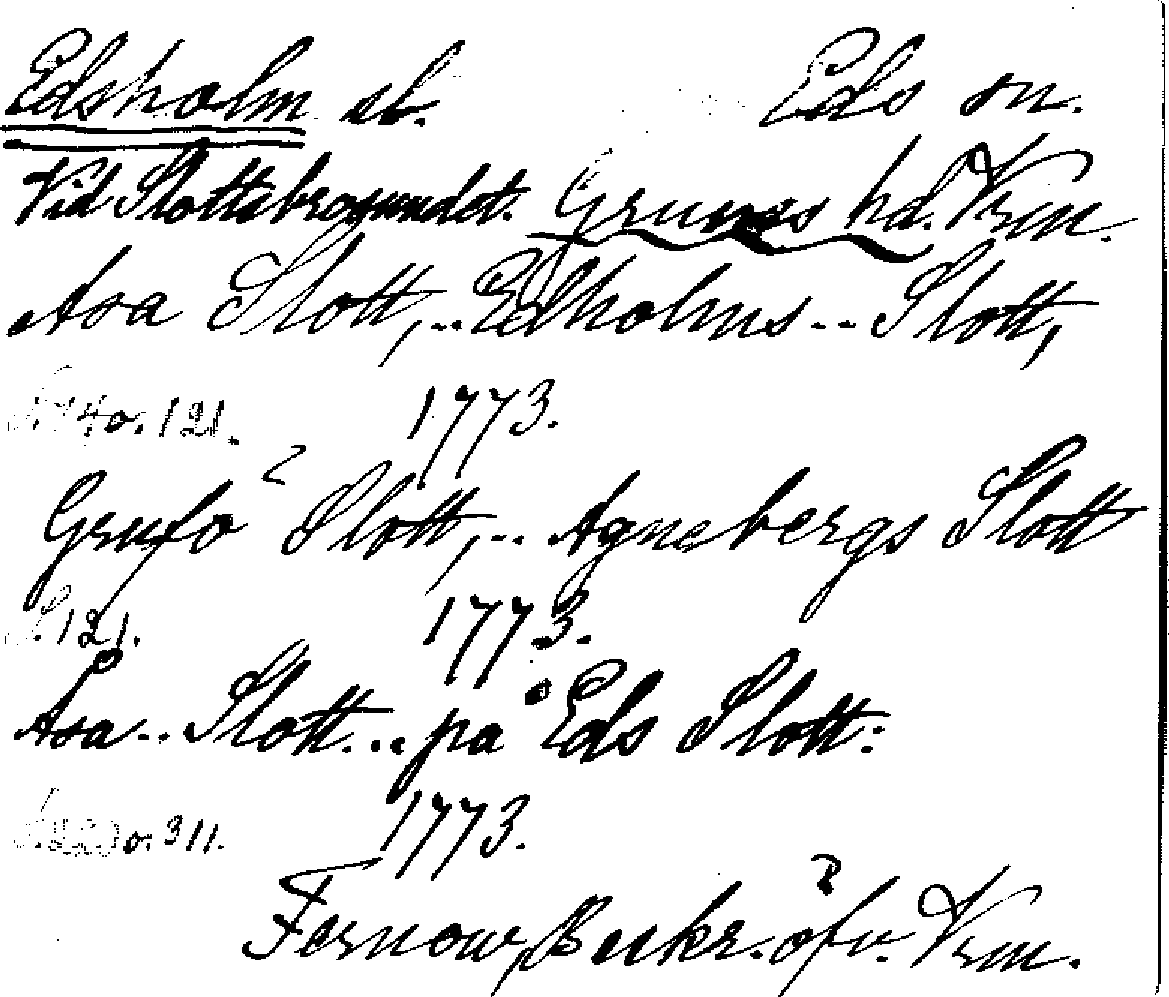 Edsholm sb. Eds sn.
Vid Slottsbrosundet. Grums hd. Vrm.
Asa Slott,.. Edholms.. Slott,
o. 121. 1773.
Slott,.. Agnebergs Slott
S. 121. 1773.
Åsa.. Slott... på Eds Slott:
o. 311. 1773.
Fernow, Beskr. öfv. Vrm.